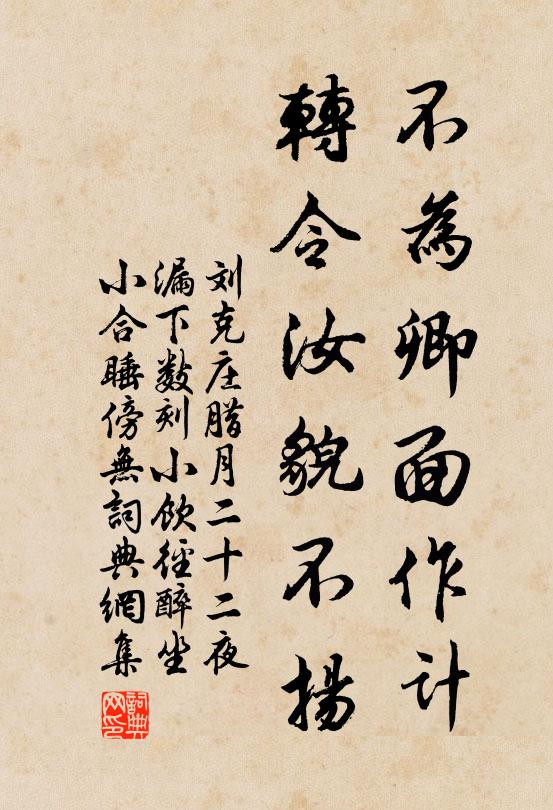 不為卿面作計
轉令汝貌不揚
刘克庄腊月二十二夜
漏下数刻小飲徑醉坐
小合睡傍無詞典網集
詞典
网印